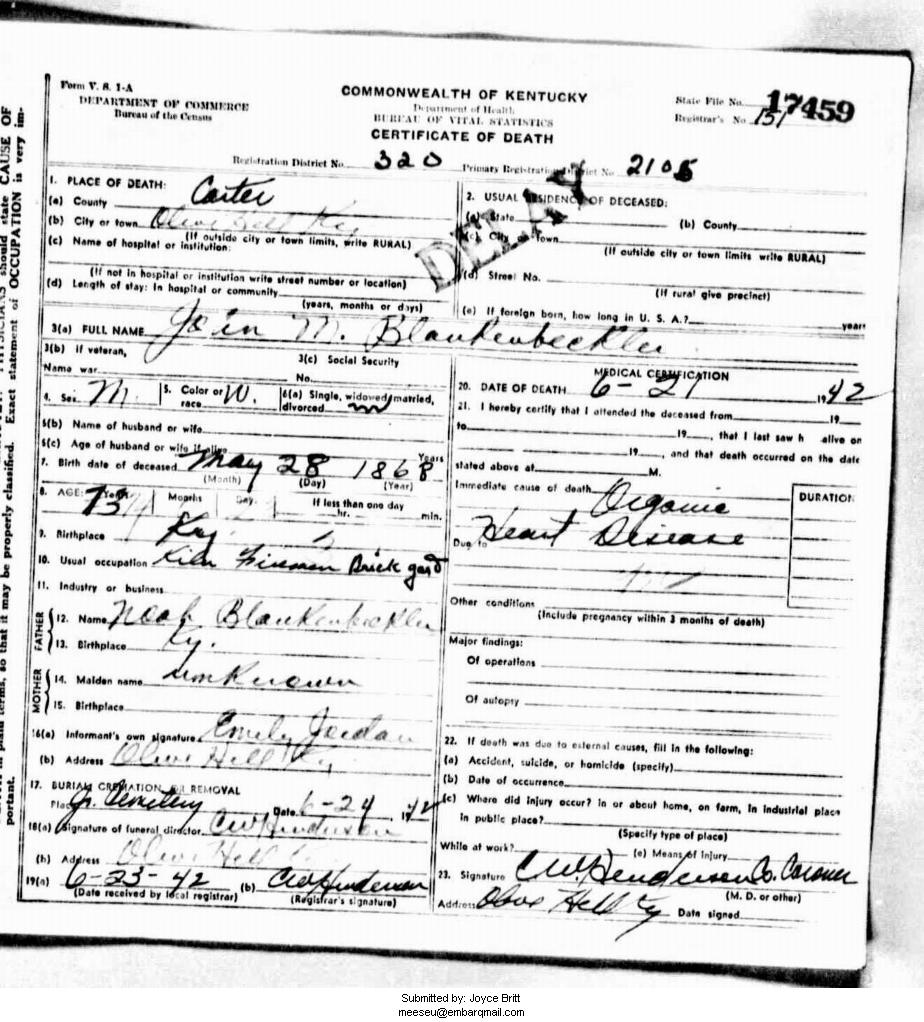 PHYSICIANS should state CAUSE OF
properly classified. Exact statement of OCCUPATION is very im-
in plain terms, so that it may be
portant.
Form V. S. 1-A
DEPARTMENT OF COMMERCE
Bureau of the Census
COMMONWEALTH OF KENTUCKY
Department of Health
BUREAU OF VITAL STATISTICS
CERTIFICATE OF DEATH
State File No. 17459
Registrar's No. 151
Registration District No. 320
Primary Registration District No. 2105
DELAY
1. PLACE OF DEATH:
(a) County Carter
(b) City or town Olive Hill Ky
(If outside city or town limits, write RURAL)
(c) Name of hospital or institution:
(If not in hospital or institution write street number or location)
(d) Length of stay: In hospital or community
(years, months or days)
2. USUAL RESIDENCE OF DECEASED:
(a) State (b) County
(c) City or Town
(If outside city or town limits write RURAL)
(d) Street No.
(If rural give precinct)
(e) If foreign born, how long in U. S. A.? years
3(a) FULL NAME John M. Blankenbeckler
3(b) If veteran,
Name war
3(c) Social Security
No.
4. Sex M. 5. Color or race W. 6(a) Single, widowed, married, divorced
6(b) Name of husband or wife
6(c) Age of husband or wife if alive Years
7. Birth date of deceased May 28 1868
(Month) (Day) (Year)
8. AGE: Years Months Day. If less than one day
hr. min.
9. Birthplace Ky.
10. Usual occupation Kiln Fireman Brick yard
11. Industry or business
FATHER
12. Name Noah Blankenbeckler
13. Birthplace Ky.
MOTHER
14. Maiden name unknown
15. Birthplace
16(a) Informant's own signature Emely Jordan
(b) Address Olive Hill Ky
17. BURIAL CREMATION OR REMOVAL
Place Cemetery Date 6-24 1942
18(a) Signature of funeral director CW Henderson
(b) Address Olive Hill Ky
19(a) 6-23-42 (b) CW Henderson
(Date received by local registrar) (Registrar's signature)
MEDICAL CERTIFICATION
20. DATE OF DEATH 6-21 1942
21. I hereby certify that I attended the deceased from 19
to 19, that I last saw h alive on
19, and that death occurred on the date
stated above at M.
Immediate cause of death Organic
DURATION
Due to Heart Disease
Other conditions
(Include pregnancy within 3 months of death)
Major findings:
Of operations
Of autopsy
22. If death was due to external causes, fill in the following:
(a) Accident, suicide, or homicide (specify)
(b) Date of occurrence
(c) Where did injury occur? in or about home, on farm, in industrial place
in public place?
(Specify type of place)
While at work? (e) Means of injury
23. Signature CW. Henderson Co. Coroner
(M. D. or other)
Address Olive Hill Ky Date signed
Submitted by: Joyce Britt
meeseu@embarqmail.com